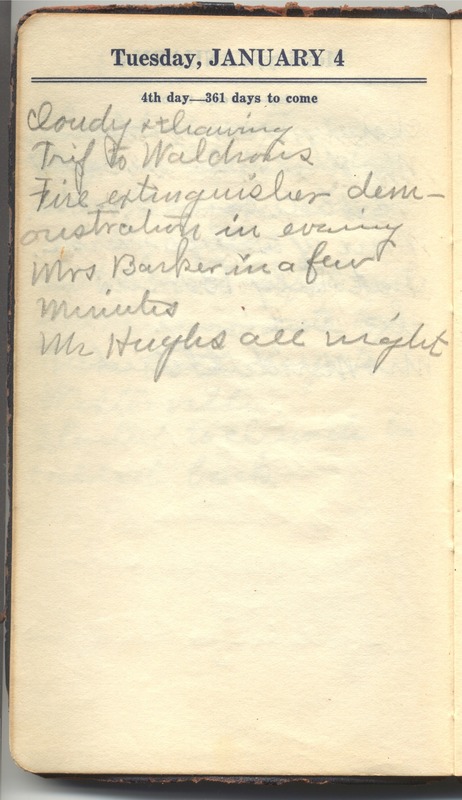 Tuesday, JANUARY 4
4th day—361 days to come
Cloudy & thawing
Trip to Waldrons
Fire extinguisher dem-
onstration in evening
Mrs. Barker in a few
minutes
Mr Hughs all night